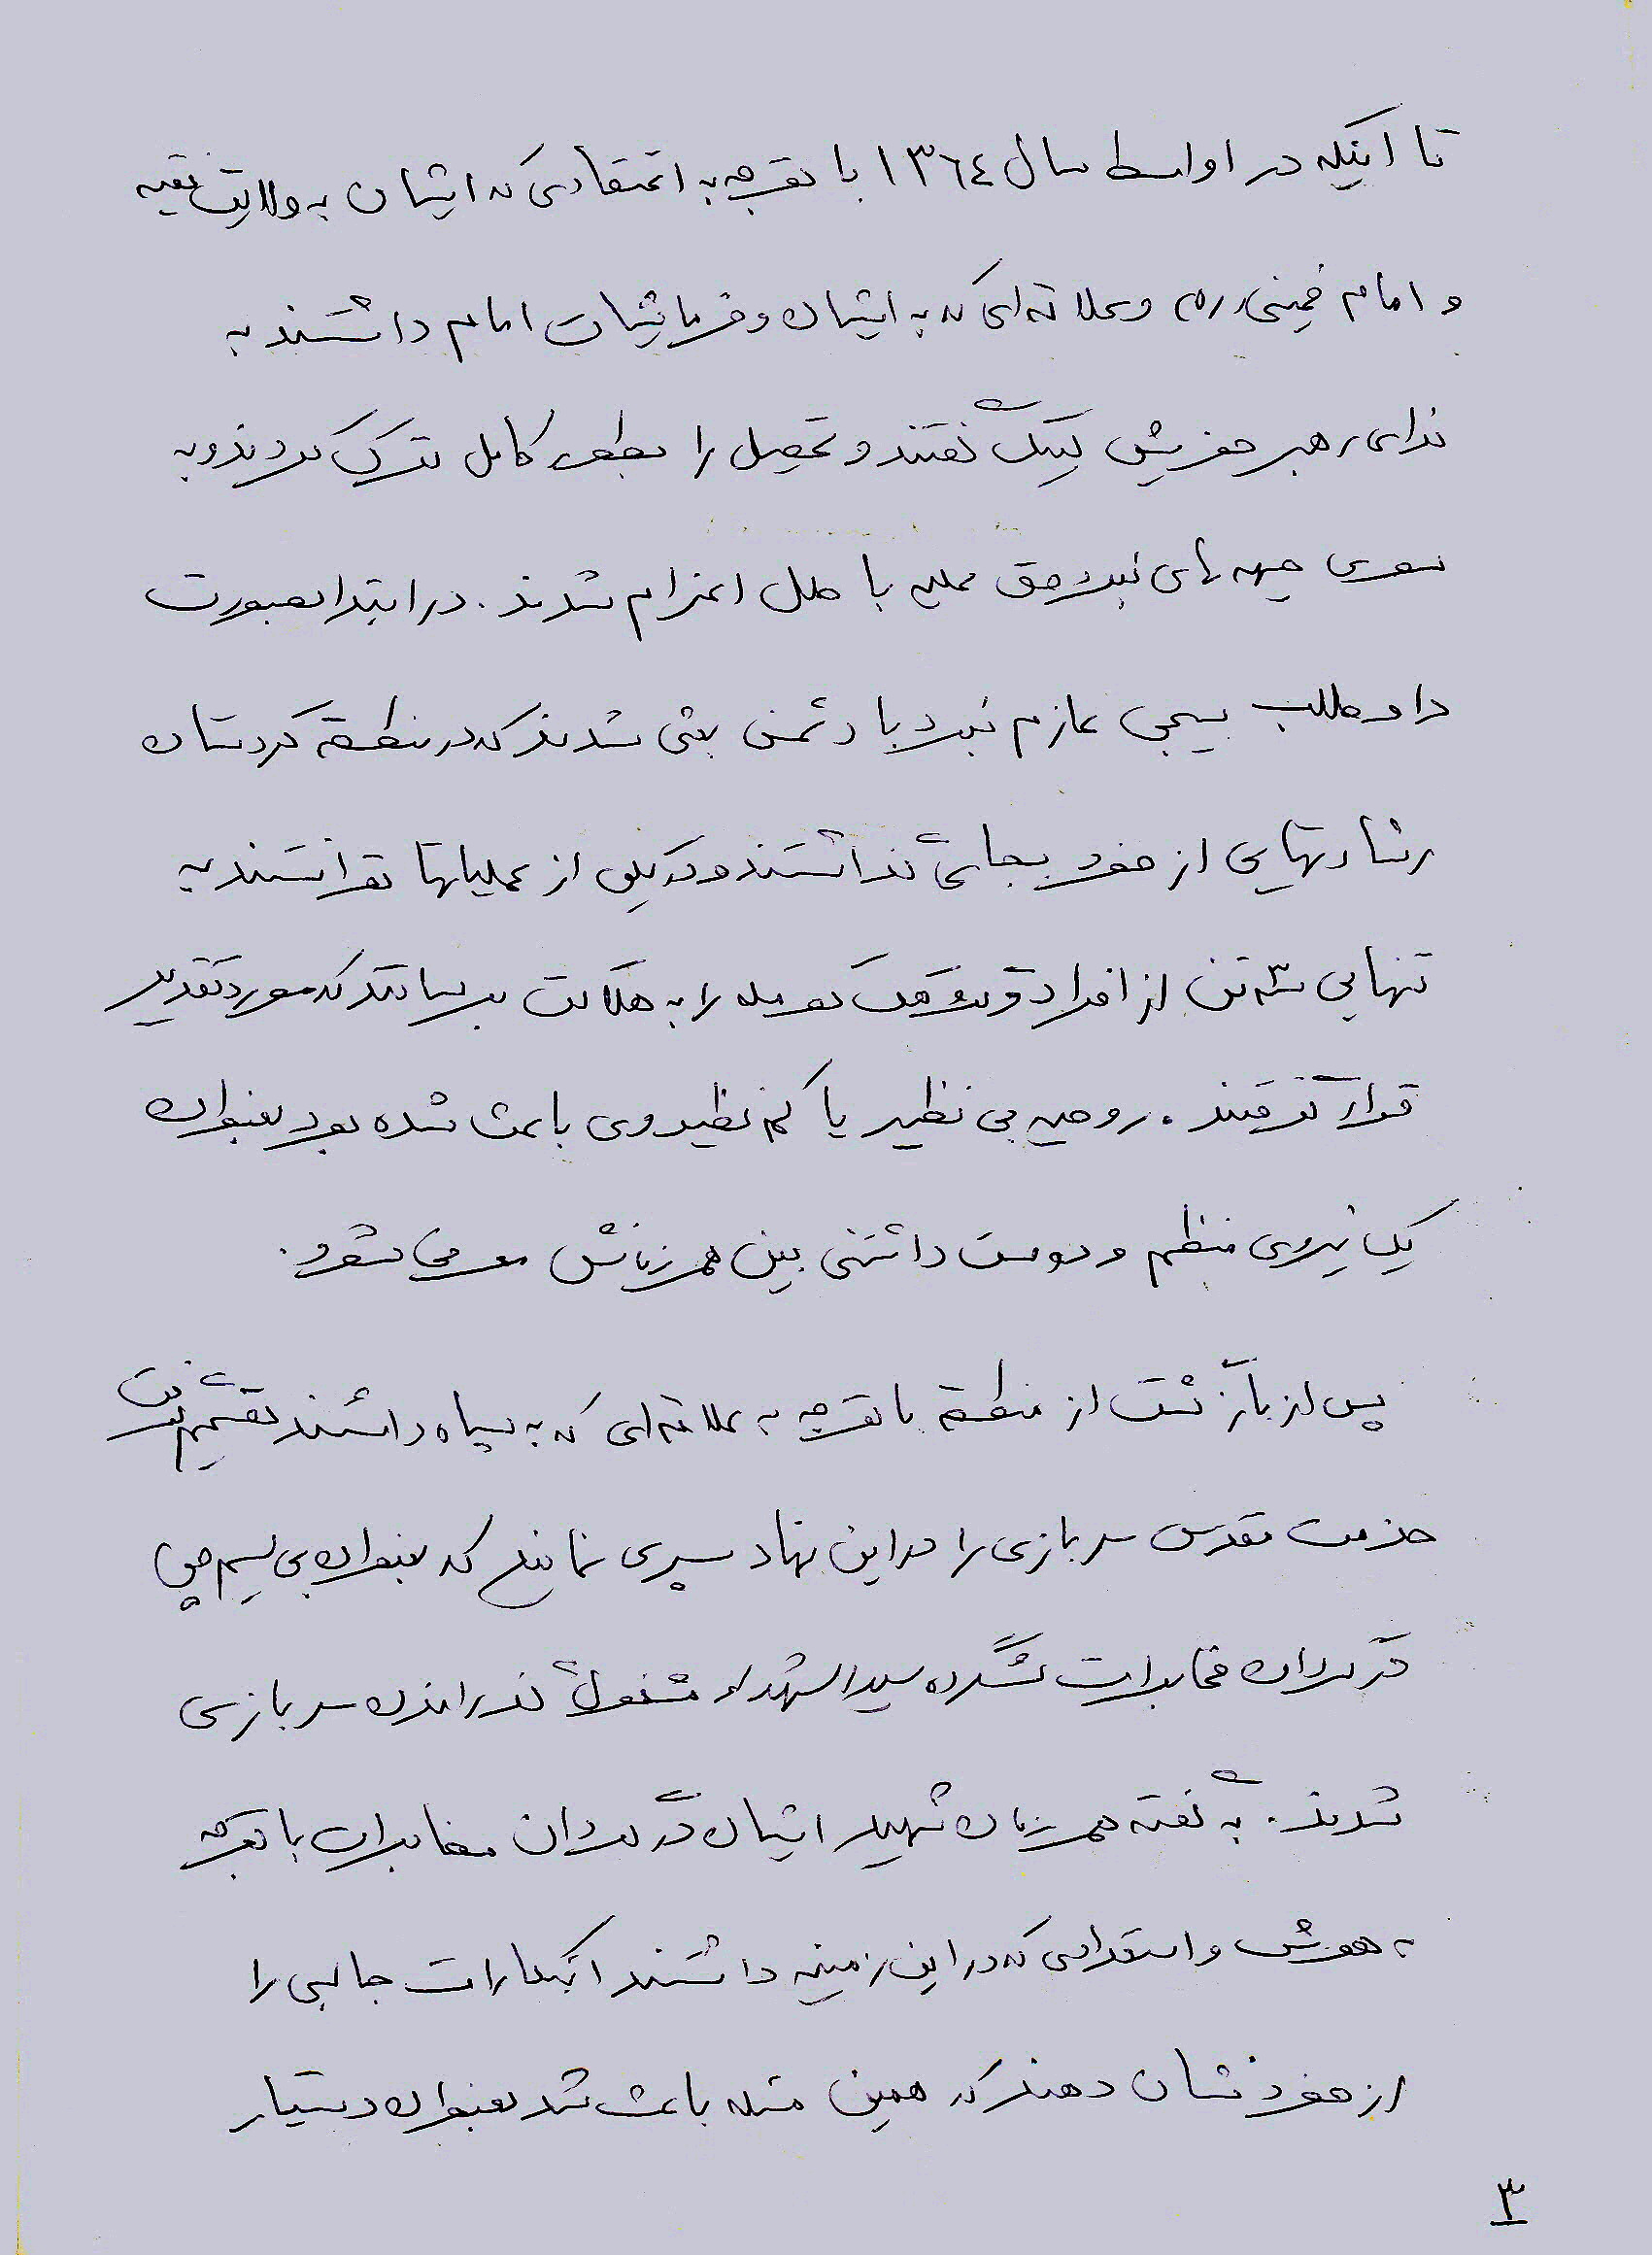 تا اینکه در اواسط سال ۱۳۶۴ با توجه به اعتقادی که ایشان به ولایت فقیه
و امام خمینی ره و علاقه‌ای که به ایشان و فرمایشات امام داشتند به
ندای رهبر خویش لبیک گفتند و تحصیل را بطور کامل ترک کردند و به
سوی جبهه های نبرد حق علیه باطل اعزام شدند. در ابتدا بصورت
داوطلب بسیجی عازم نبرد با دشمن بعثی شدند که در منطقه کردستان
رشادتهایی از خود بجای گذاشتند و در یکی از عملیاتها توانستند به
تنهایی سه تن از افراد کومله را به هلاکت برسانند که مورد تقدیر
قرار گرفتند. روحیه بی نظیر یا کم نظیر وی باعث شده بود بعنوان
یک نیروی منظم و دوست داشتنی بین همرزمانش معرفی شود.
پس از بازگشت از منطقه با توجه به علاقه‌ای که به سپاه داشتند تصمیم گرفتند
خدمت مقدس سربازی را در این نهاد سپری نمایند که بعنوان بی سیم چی
در گردان مخابرات لشگر ده سیدالشهداء مشغول گذراندن سربازی
شدند. به گفته همرزمان شهید ایشان در گردان مخابرات با توجه
به هوش و استعدادی که در این زمینه داشتند ابتکارات جالبی را
از خود نشان دهند که همین مسئله باعث شد بعنوان دستیار
۳